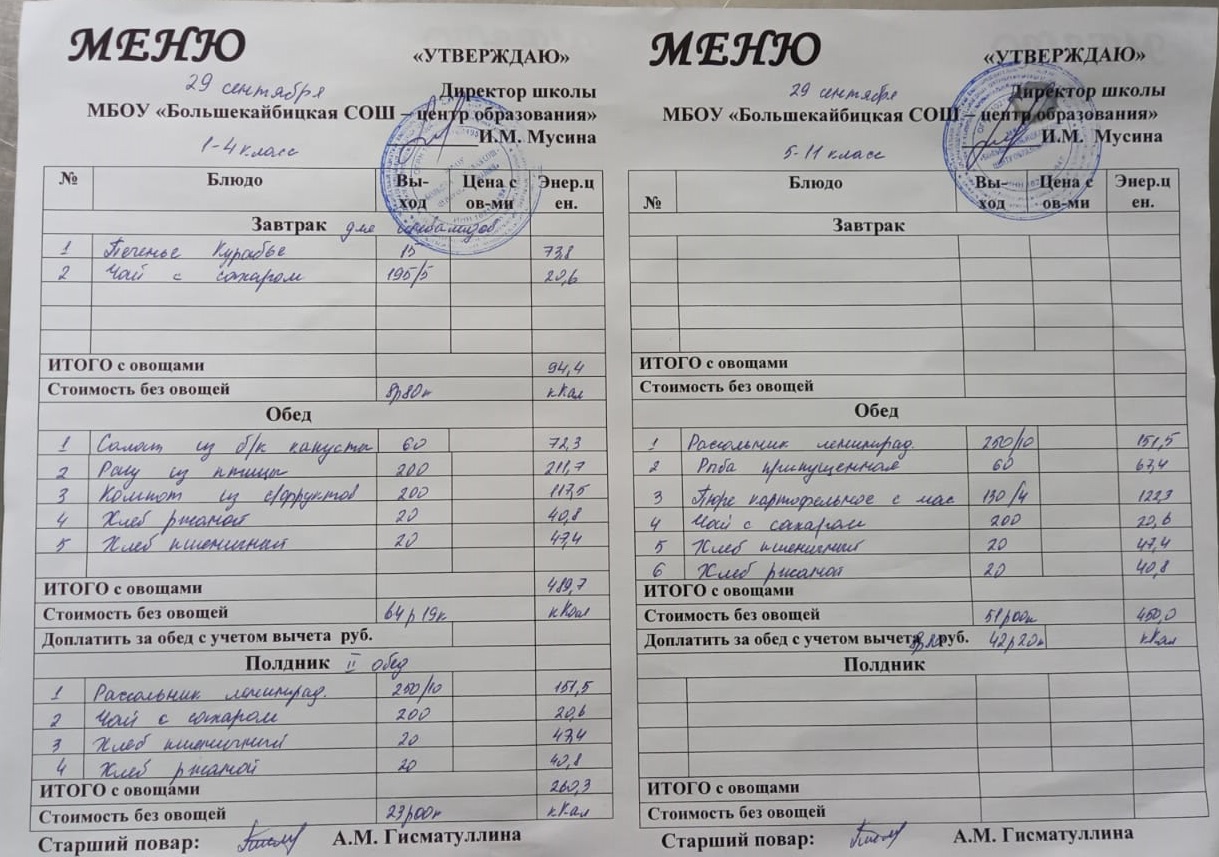 МЕНЮ
«УТВЕРЖДАЮ»
29 сентября
Директор школы
МБОУ «Большекайбицкая СОШ – центр образования»
И.М. Мусина
1-4 класс
№ Блюдо Вы-ход Цена с ов-ми Энер.ц ен.
Завтрак для инвалидов
1 Печенье Курабье 15 73,8
2 Чай с сахаром 195/5 20,6
ИТОГО с овощами 94,4
Стоимость без овощей 8р80к кКал
Обед
1 Салат из б/к капусты 60 72,3
2 Рагу из птицы 200 211,7
3 Компот из с/фруктов 200 117,5
4 Хлеб ржаной 20 40,8
5 Хлеб пшеничный 20 47,4
ИТОГО с овощами 489,7
Стоимость без овощей 64р19к кКал
Доплатить за обед с учетом вычета руб.
Полдник II обед
1 Рассольник ленинград. 250/10 151,5
2 Чай с сахаром 200 20,6
3 Хлеб пшеничный 20 47,4
4 Хлеб ржаной 20 40,8
ИТОГО с овощами 260,3
Стоимость без овощей 23р00к кКал
Старший повар: А.М. Гисматуллина
МЕНЮ
«УТВЕРЖДАЮ»
29 сентября
Директор школы
МБОУ «Большекайбицкая СОШ – центр образования»
И.М. Мусина
5-11 класс
№ Блюдо Вы-ход Цена с ов-ми Энер.ц ен.
Завтрак
ИТОГО с овощами
Стоимость без овощей
Обед
1 Рассольник ленинград. 250/10 151,5
2 Рыба припущенная 60 67,4
3 Пюре картофельное с мас 130/4 122,3
4 Чай с сахаром 200 20,6
5 Хлеб пшеничный 20 47,4
6 Хлеб ржаной 20 40,8
ИТОГО с овощами
Стоимость без овощей 51р00к 450,0
Доплатить за обед с учетом вычета руб. 42р20к кКал
Полдник
ИТОГО с овощами
Стоимость без овощей
Старший повар: А.М. Гисматуллина